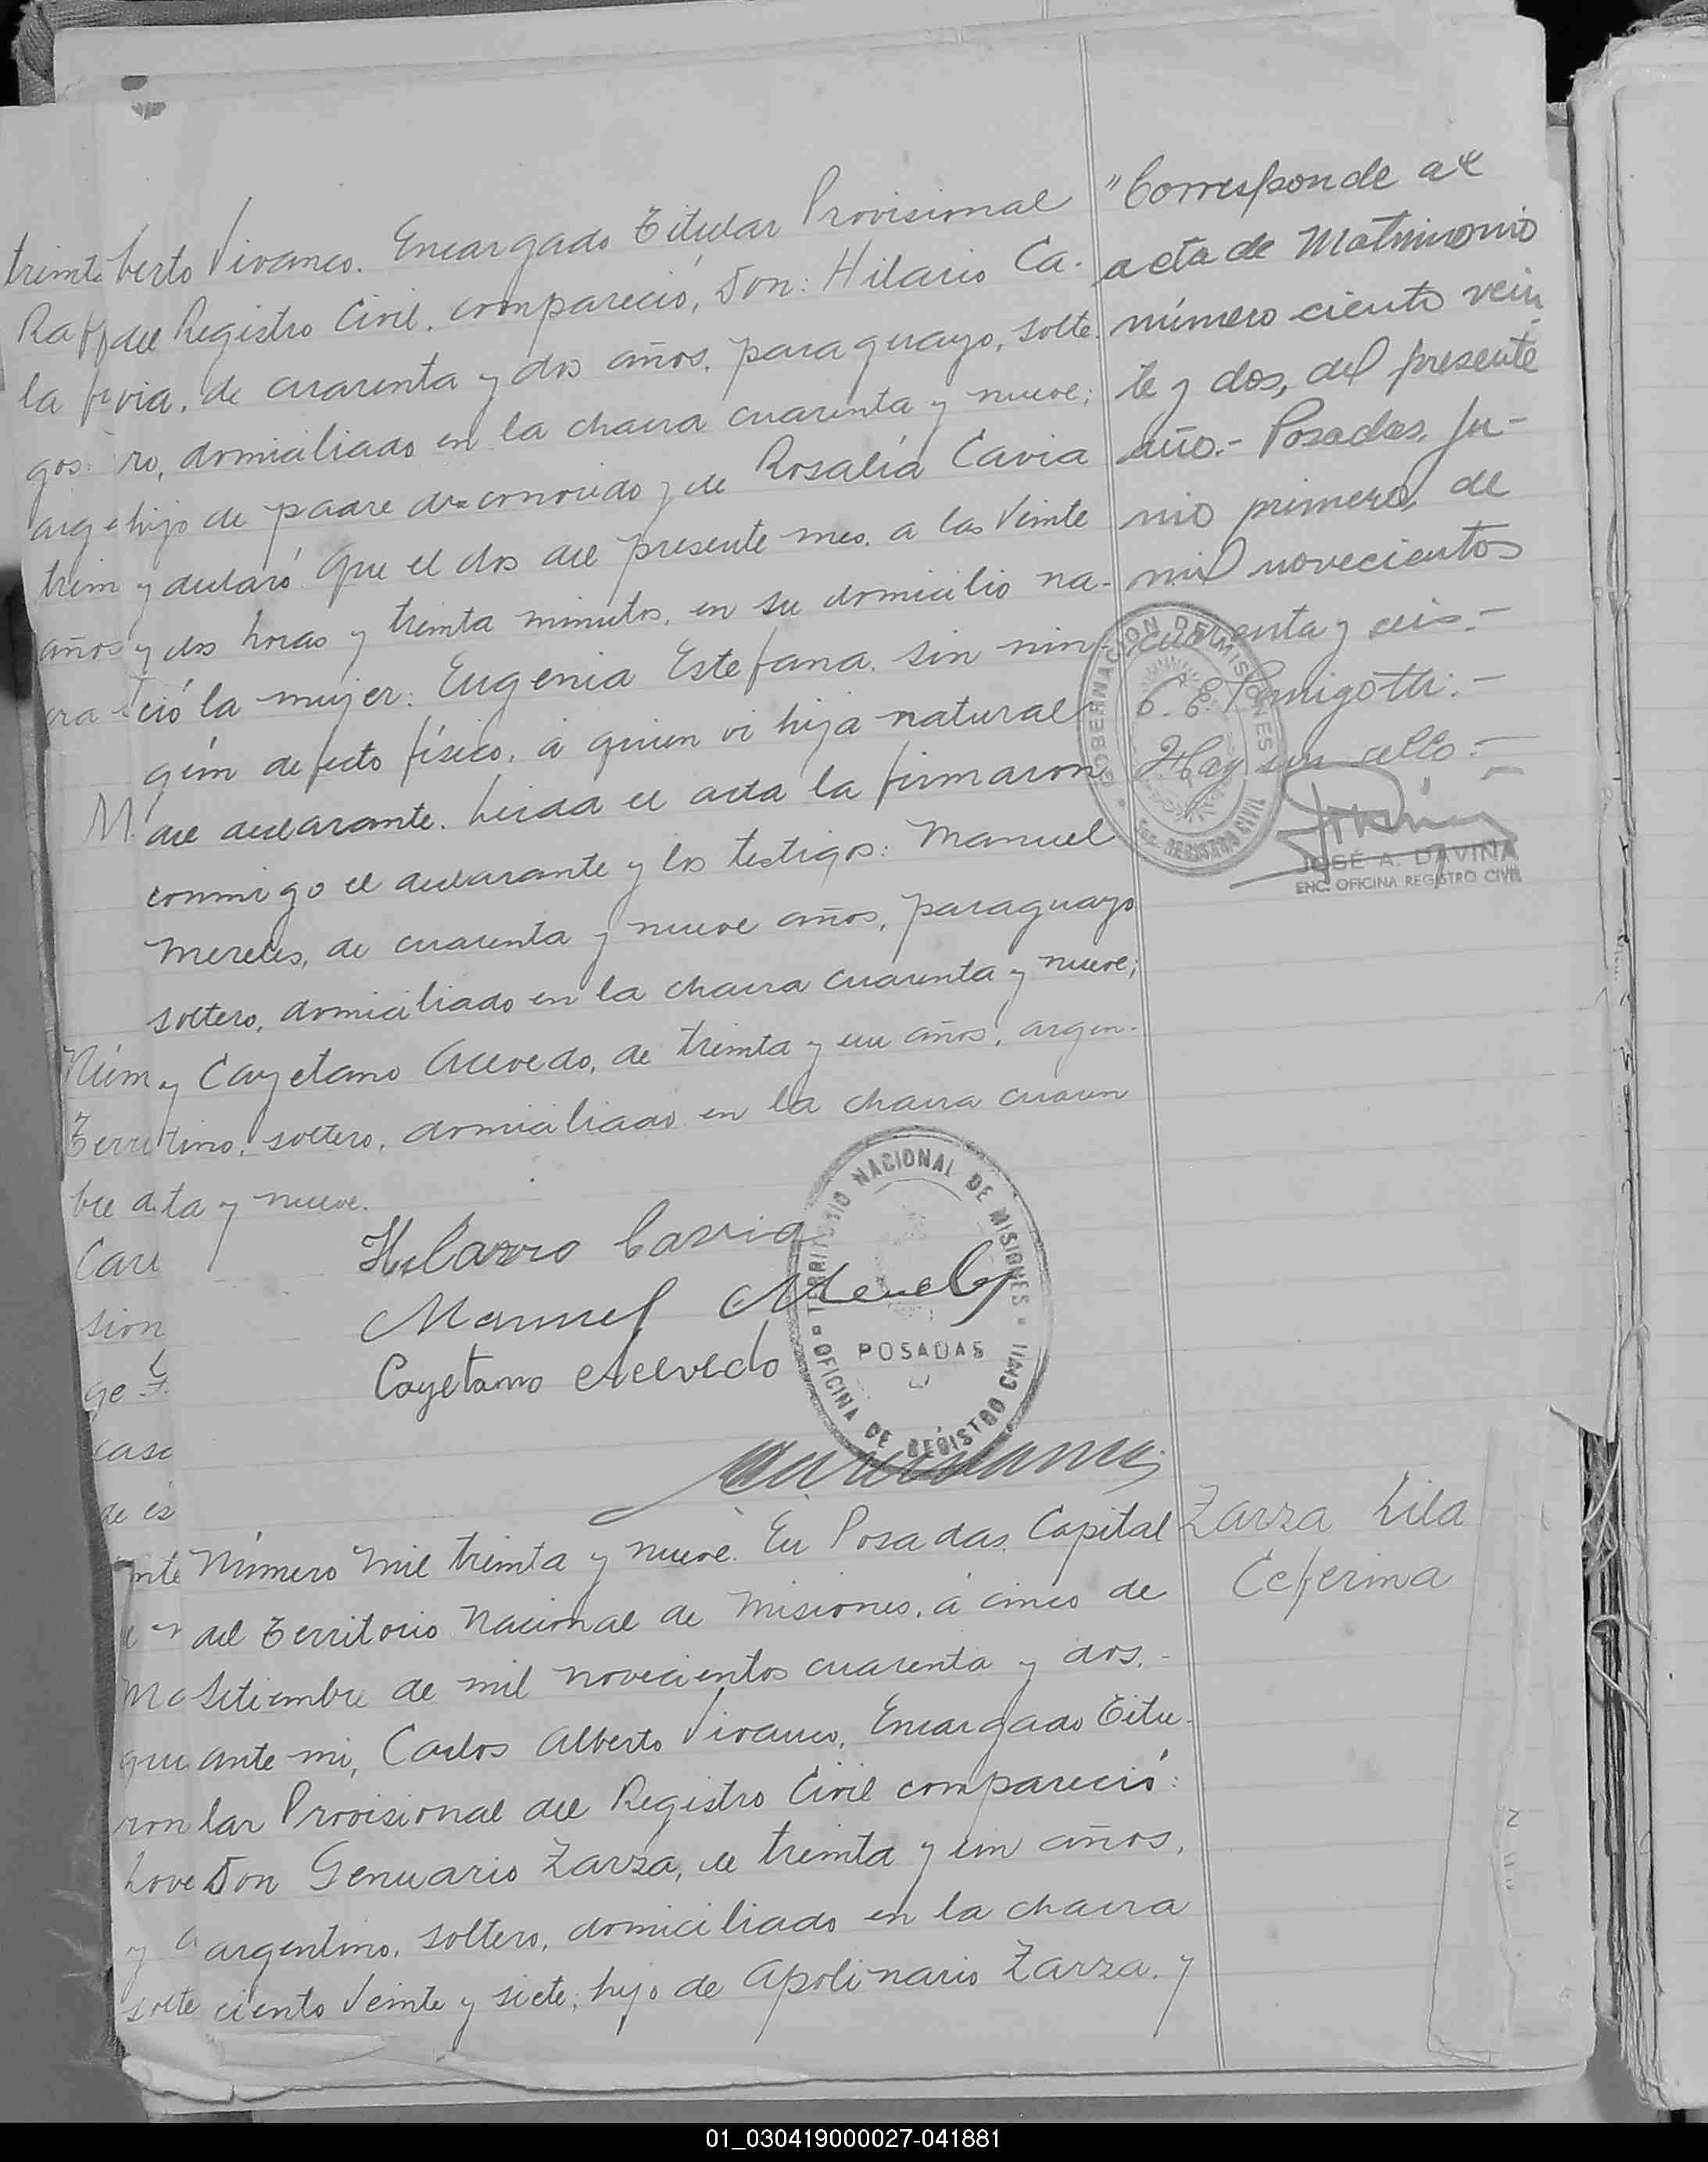 berto Vivanco. Encargado Titular Provisional
del Registro Civil. compareció, Don: Hilario Ca-
via, de cuarenta y dos años, paraguayo, solte-
ro, domiciliado en la chacra cuarenta y nueve;
hijo de padre desconocido y de Rosalía Cavia
y declaró: Que el dos del presente mes, a las Veinte
y dos horas y treinta minutos, en su domicilio na-
ció la mujer: Eugenia Estefana. sin nin-
gún defecto físico, á quien vi hija natural
del declarante. Leida el acta la firmaron
conmigo el declarante y los testigos: Manuel
Mereles, de cuarenta y nueve años, paraguayo
soltero, domiciliado en la chacra cuarenta y nueve;
y Cayetano Acevedo, de treinta y un años, argen-
tino, soltero, domiciliado en la chacra cuaren
ta y nueve.
Hilario Cavia
Manuel Mereles
Cayetano Acevedo
TERRITORIO NACIONAL DE MISIONES
POSADAS
OFICINA DE REGISTRO CIVIL
"Corresponde al
acta de Matrimonio
número ciento vein-
te y dos, del presente
año.- Posadas, Ju-
nio primero, de
mil novecientos
cuarenta y seis.-
Hay un sello.-
GOBERNACION DE MISIONES
REGISTRO CIVIL
JOSÉ A. DAVIÑA
ENC. OFICINA REGISTRO CIVIL
Número Mil treinta y nueve. En Posadas, Capital
del Territorio Nacional de Misiones, á cinco de
Setiembre de mil novecientos cuarenta y dos.-
ante mi, Carlos Alberto Vivanco, Encargado Titu-
lar Provisional del Registro Civil compareció:
Don Genuario Zarza, de treinta y un años,
argentino, soltero, domiciliado en la chacra
ciento Veinte y siete; hijo de Apolinario Zarza. y
Zarza Lila
Ceferina
treinta
la
gos
arge
años
Núm
Terri
Care
sion
ge
casa
de es
solte
01_030419000027-041881